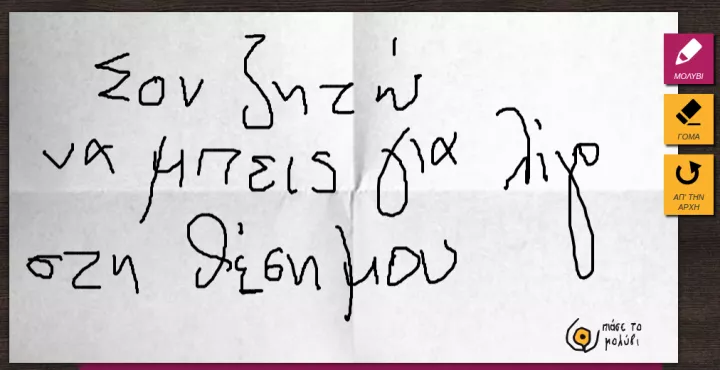 Σου ζητώ
να μπεις για λίγο
στη θέση μου
ΜΟΛΥΒΙ
ΓΟΜΑ
ΑΠ' ΤΗΝ
ΑΡΧΗ
πιάσε το
μολύβι